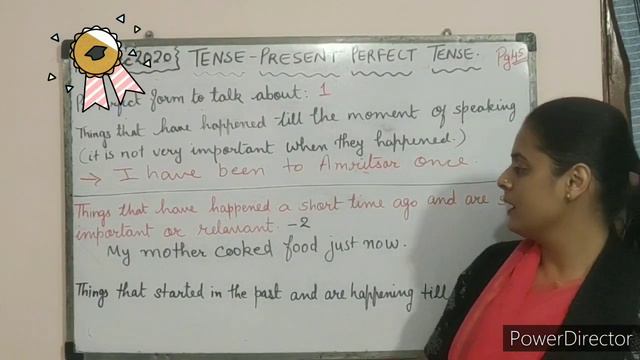 2020} TENSE-PRESENT PERFECT TENSE. Pg 45
form to talk about: 1
Things that have happened till the moment of speaking
(it is not very important when they happened.)
→ I have been to Amritsar once.
Things that have happened a short time ago and are
important or relavant. -2
My mother cooked food just now.
Things that started in the past and are happening till
PowerDirector